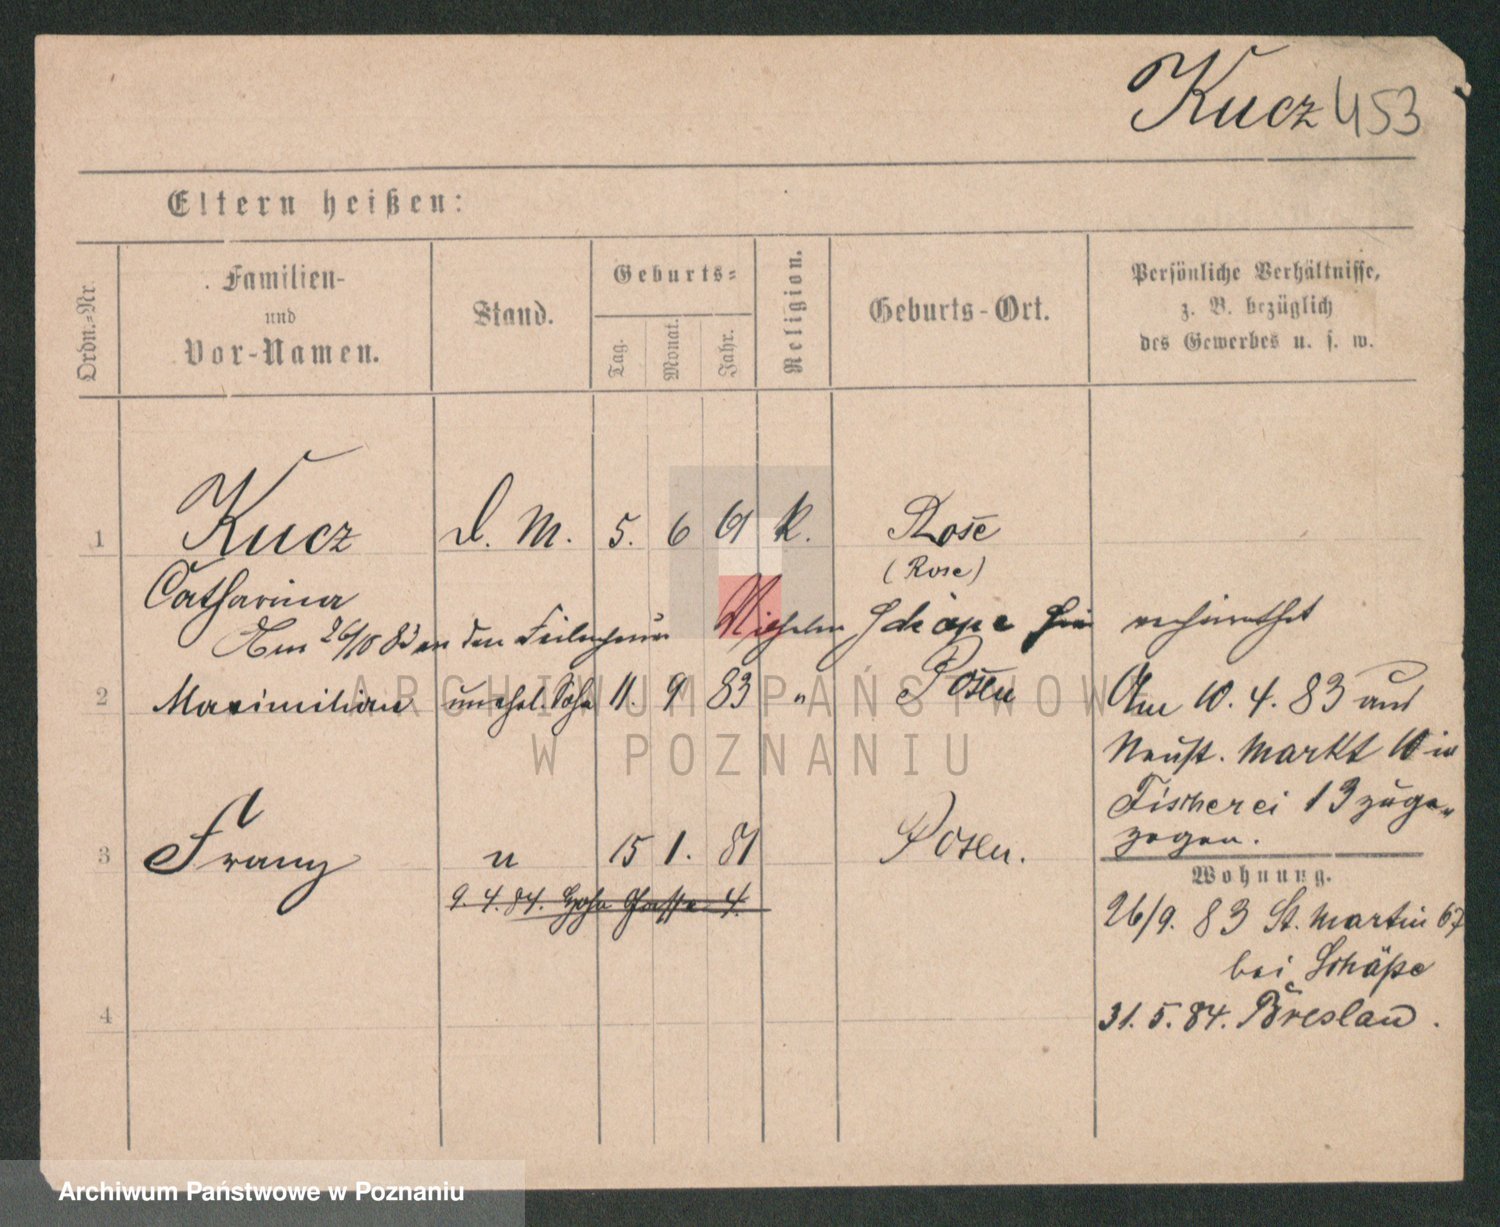 Kucz 453
Eltern heißen:
Ordn.-Nr.
Familien-
und
Vor-Namen.
Stand.
Geburts-
Tag.
Monat.
Jahr.
Religion.
Geburts-Ort.
Persönliche Verhältnisse,
z. B. bezüglich
des Gewerbes u. s. w.
1 Kucz D. M. 5. 6 61 k. Rose
Catharina (Rose)
Am 26/10 83 an den Feilenhauer Wilhelm Schäpe hier verheirathet
2 Maximilian unehel. Sohn 11. 9 83 " Posen
Am 10. 4. 83 aus
Neust. Markt 10 in
Fischerei 13 zuge-
zogen.
3 Franz u 15 1. 81 Posen.
9. 4. 84. Hohe Gasse 4.
Wohnung.
26/9. 83 St. Martin 67
bei Schäpe
4 31. 5. 84. Breslau.
ARCHIWUM PAŃSTWOW
W POZNANIU
Archiwum Państwowe w Poznaniu